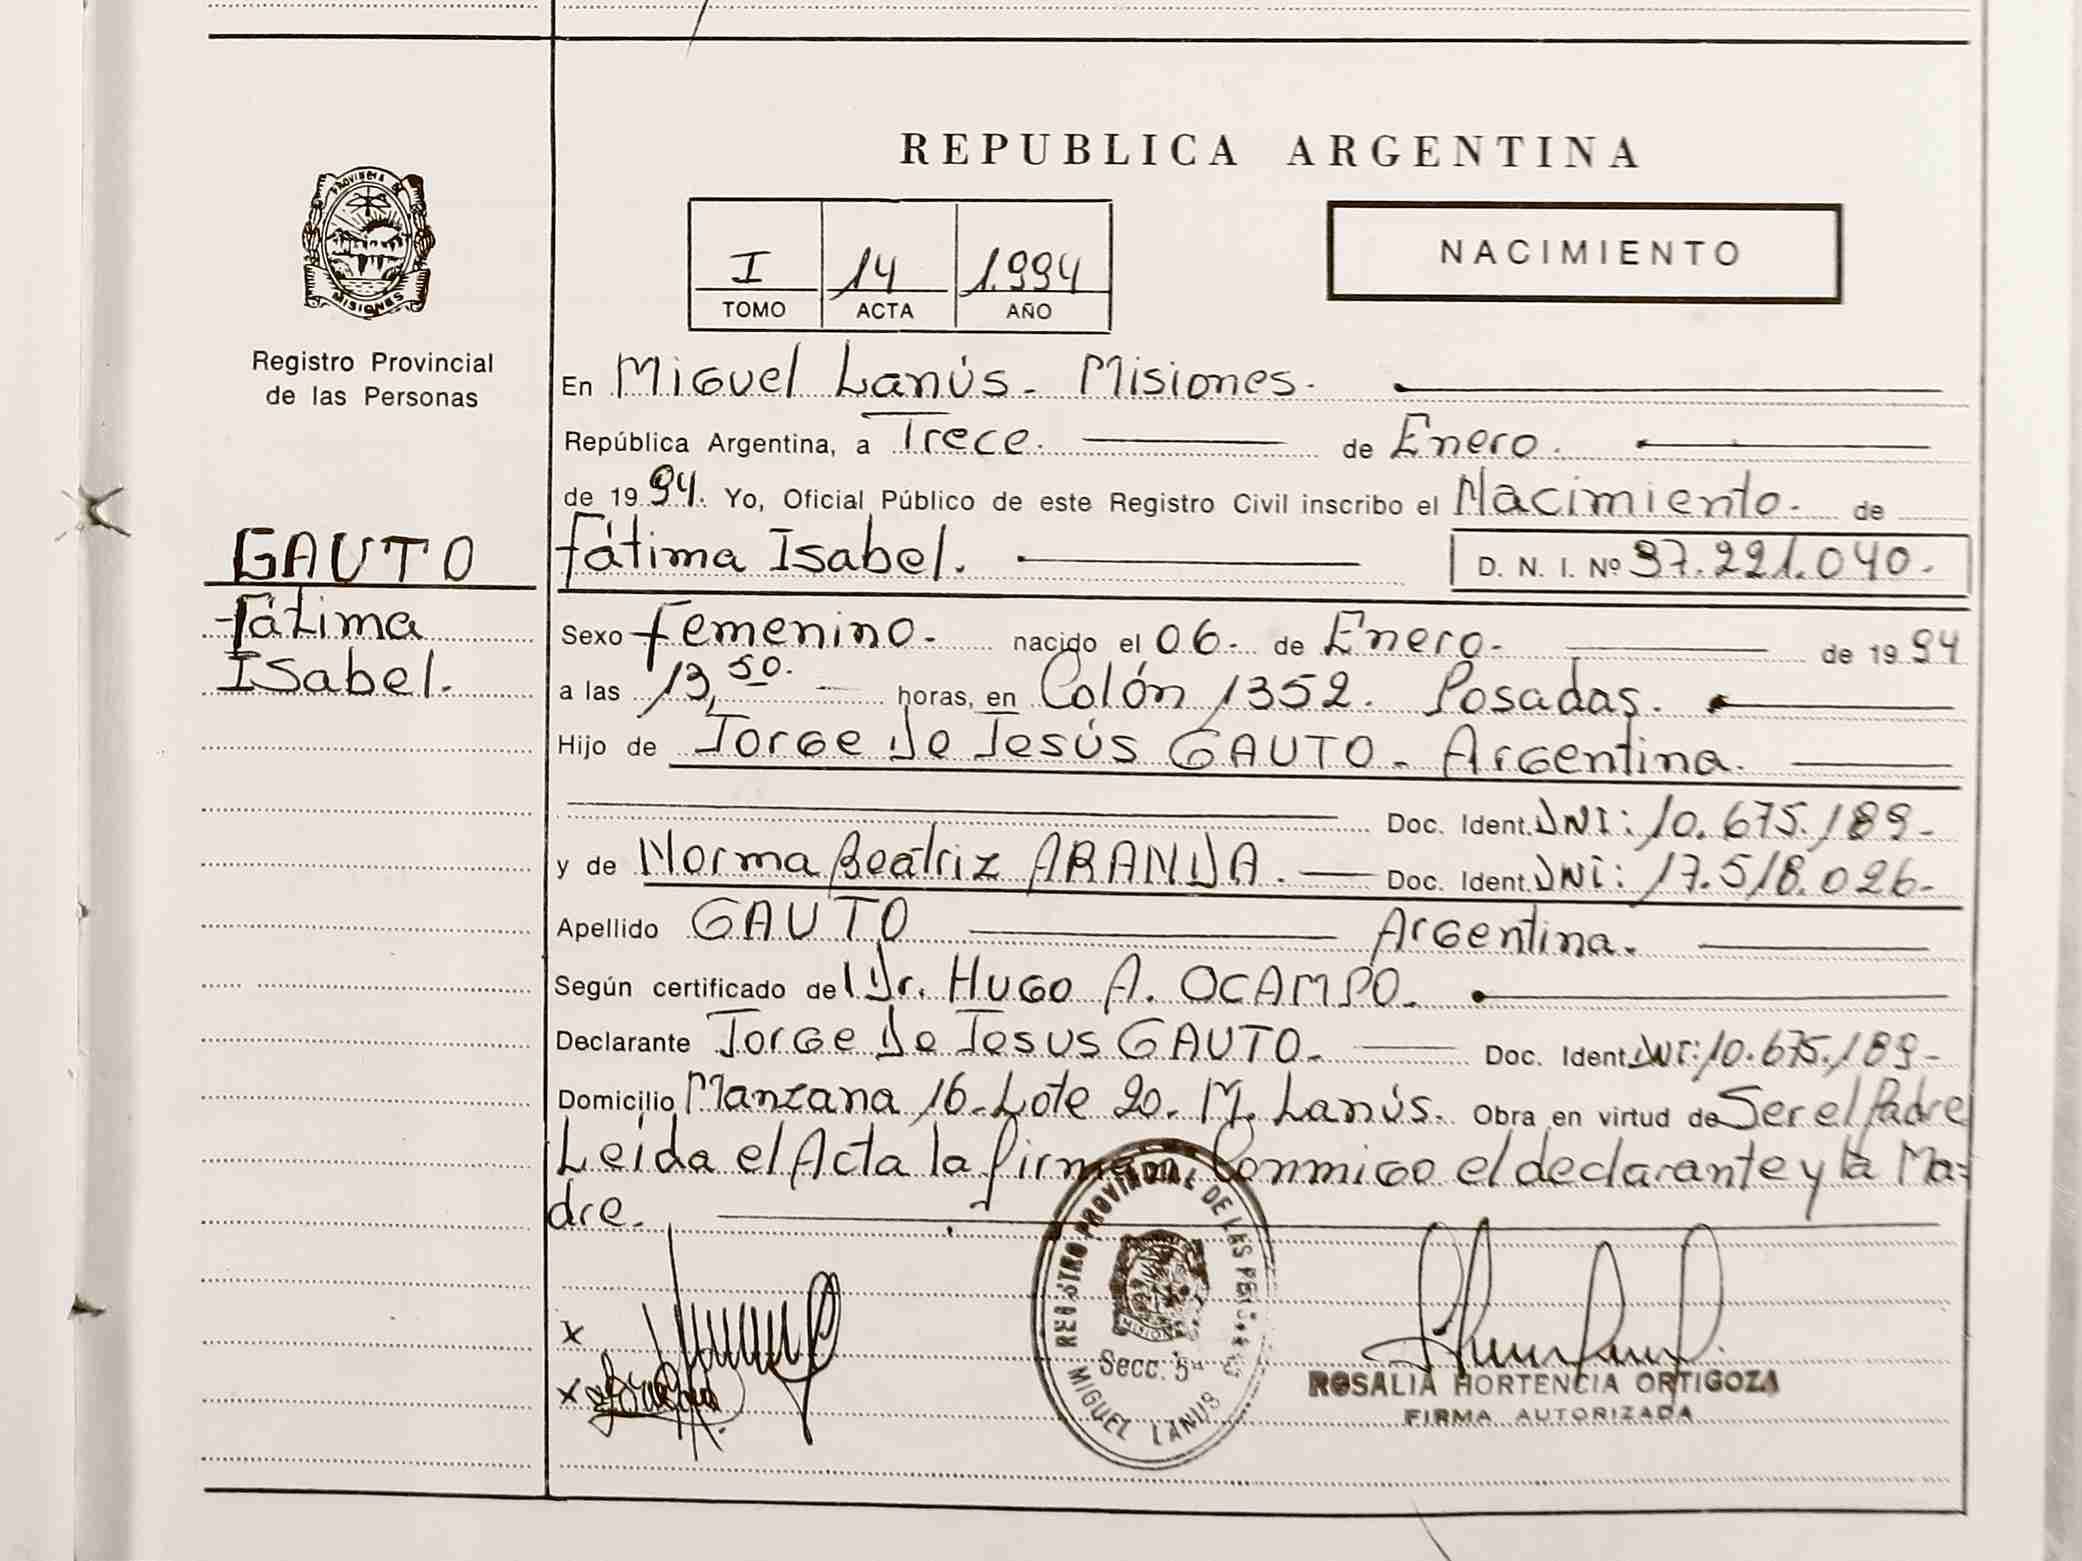 REPUBLICA ARGENTINA
PROVINCIA DE
MISIONES
Registro Provincial
de las Personas
I 14 1.994
TOMO ACTA AÑO
NACIMIENTO
En Miguel Lanús - Misiones.
República Argentina, a Trece. de Enero.
de 1994. Yo, Oficial Público de este Registro Civil inscribo el Nacimiento. de
GAUTO
Fátima Isabel. D. N. I. Nº 37.221.040.
Fátima
Isabel.
Sexo Femenino. nacido el 06. de Enero. de 1994
a las 13,50. horas, en Colón 1352. Posadas.
Hijo de Jorge De Jesús GAUTO. Argentina.
Doc. Ident. DNI: 10.675.189.
y de Norma Beatriz ARANDA. Doc. Ident. DNI: 17.518.026.
Apellido GAUTO Argentina.
Según certificado del Dr. Hugo A. OCAMPO.
Declarante Jorge De Jesus GAUTO. Doc. Ident. DNI: 10.675.189.
Domicilio Manzana 16. Lote 20. M. Lanús. Obra en virtud de Ser el Padre
Leida el Acta la firman Conmigo el declarante y la Ma-
dre.
REGISTRO PROVINCIAL DE LAS PERSONAS
MISIONES
Secc. 5ª
MIGUEL LANUS
x
x
ROSALIA HORTENCIA ORTIGOZA
FIRMA AUTORIZADA